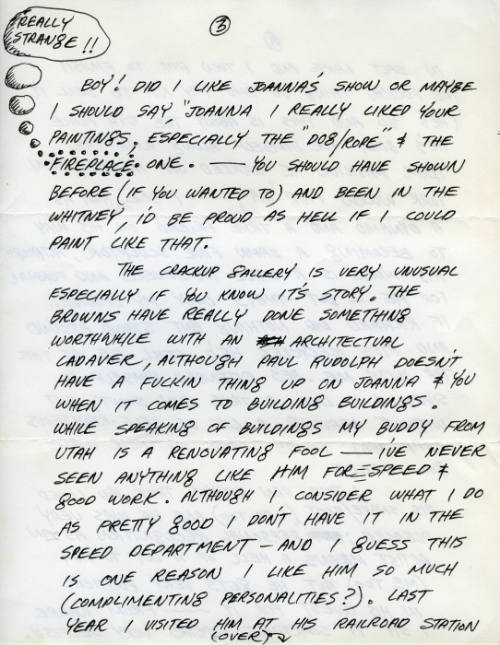 3
REALLY
STRANGE!!
BOY! DID I LIKE JOANNA'S SHOW OR MAYBE
I SHOULD SAY, "JOANNA I REALLY LIKED YOUR
PAINTINGS, ESPECIALLY THE "DOG/ROPE" & THE
FIREPLACE ONE. — YOU SHOULD HAVE SHOWN
BEFORE (IF YOU WANTED TO) AND BEEN IN THE
WHITNEY, I'D BE PROUD AS HELL IF I COULD
PAINT LIKE THAT.
THE CRACKUP GALLERY IS VERY UNUSUAL
ESPECIALLY IF YOU KNOW IT'S STORY. THE
BROWNS HAVE REALLY DONE SOMETHING
WORTHWHILE WITH AN ARCHITECTUAL
CADAVER, ALTHOUGH PAUL RUDOLPH DOESN'T
HAVE A FUCKIN THING UP ON JOANNA & YOU
WHEN IT COMES TO BUILDING BUILDINGS.
WHILE SPEAKING OF BUILDINGS MY BUDDY FROM
UTAH IS A RENOVATING FOOL — I'VE NEVER
SEEN ANYTHING LIKE HIM FOR SPEED &
GOOD WORK. ALTHOUGH I CONSIDER WHAT I DO
AS PRETTY GOOD I DON'T HAVE IT IN THE
SPEED DEPARTMENT — AND I GUESS THIS
IS ONE REASON I LIKE HIM SO MUCH
(COMPLIMENTING PERSONALITIES?). LAST
YEAR I VISITED HIM AT HIS RAILROAD STATION
(OVER)